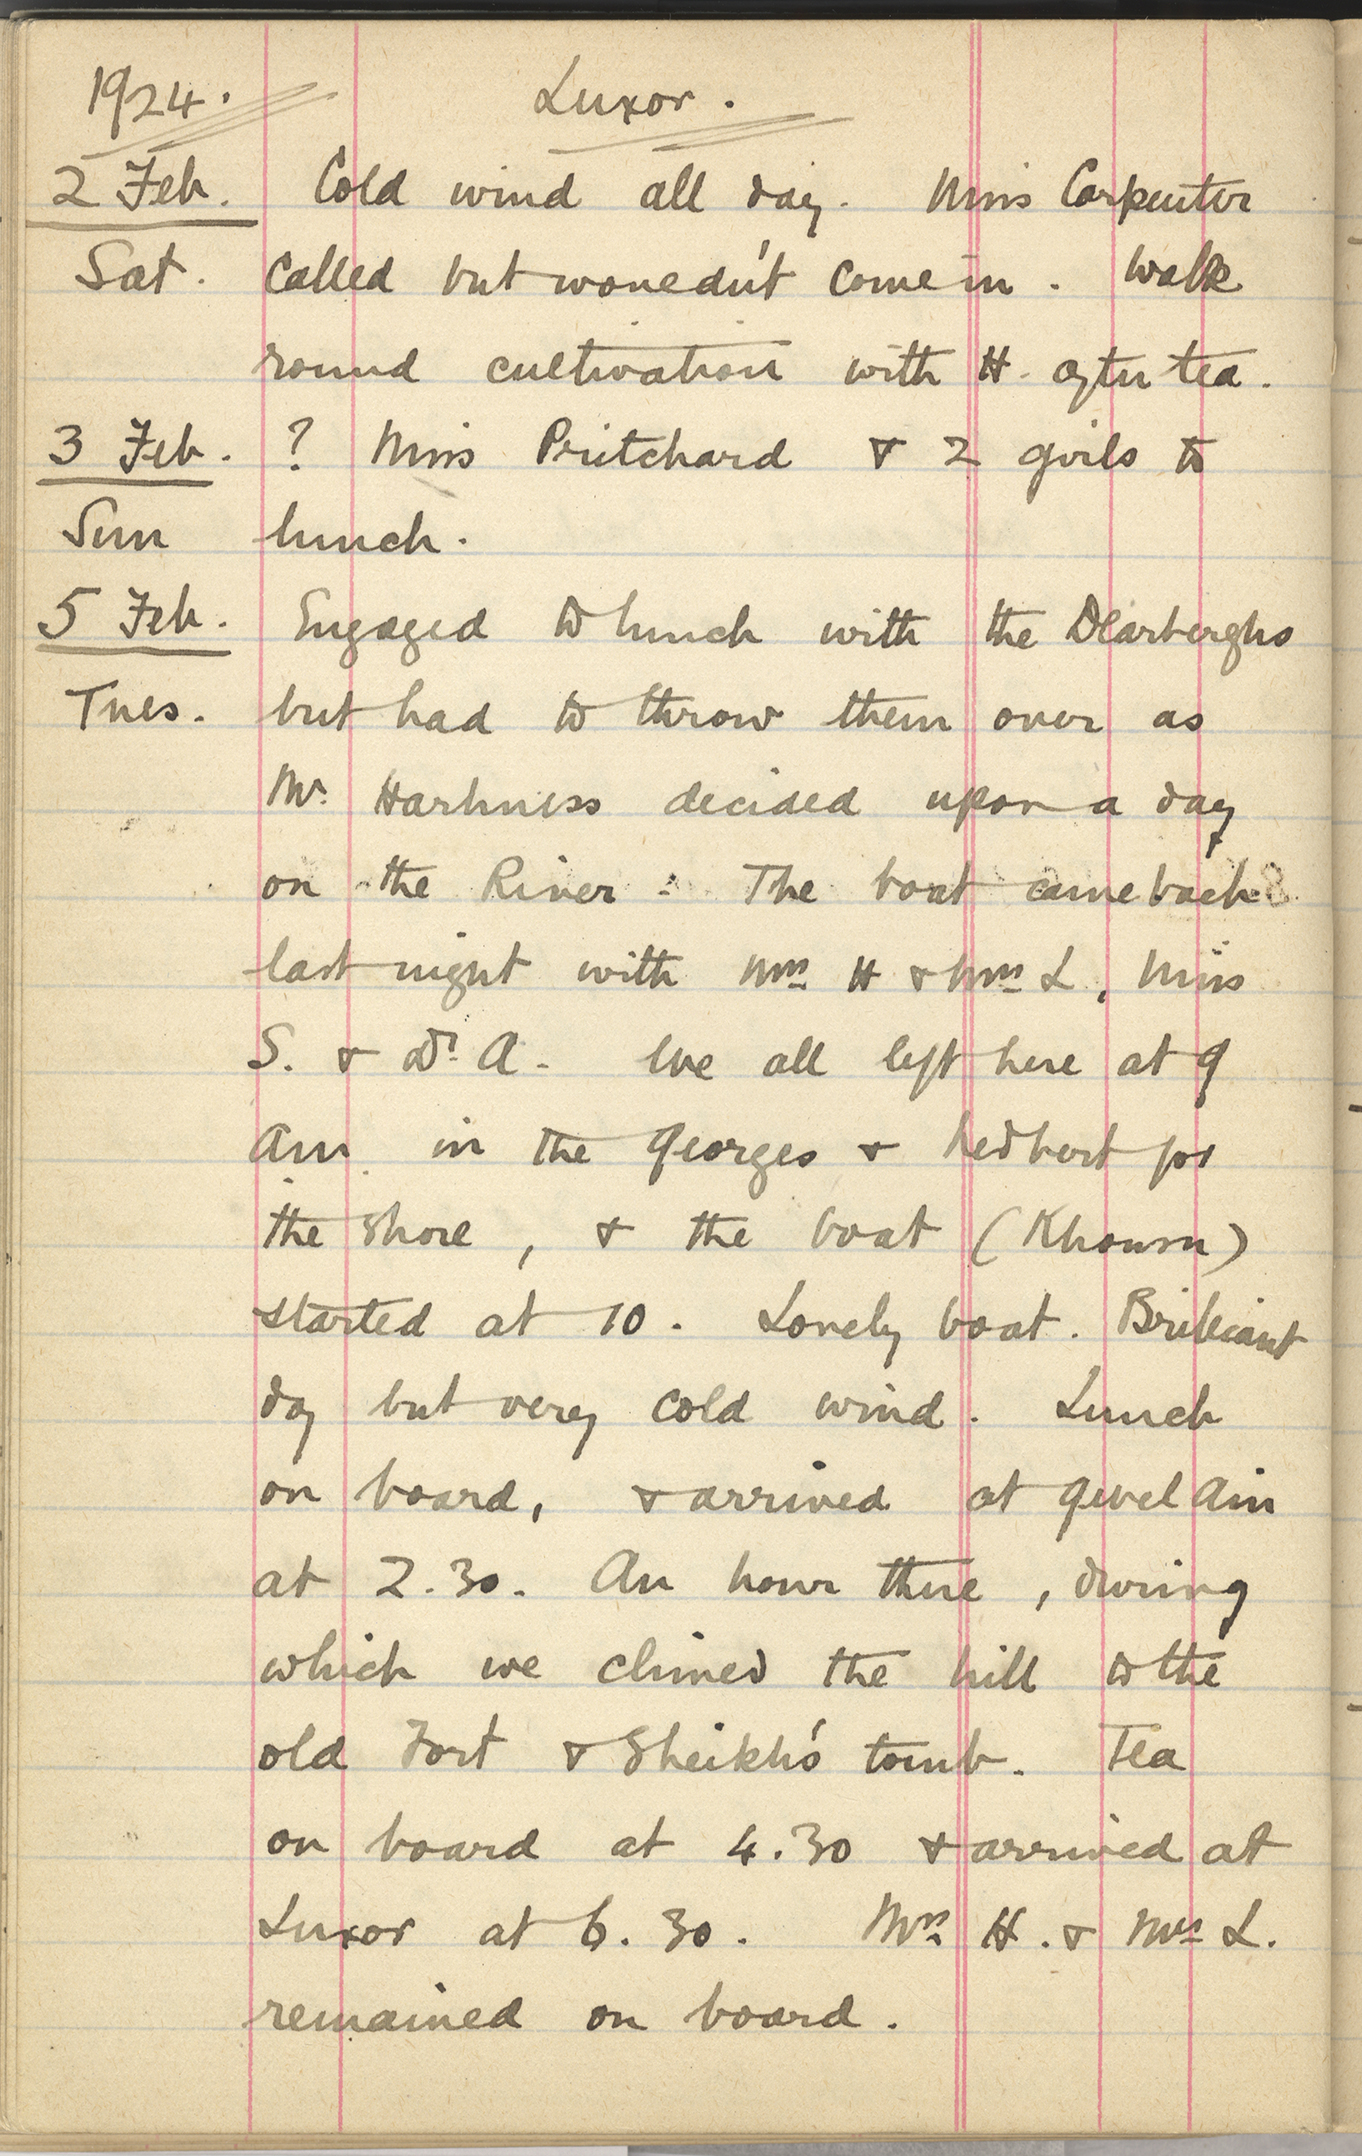 1924. Luxor.
2 Feb. Cold wind all day. Miss Carpenter
Sat. called but wouldn't come in. Walk
round cultivation with H. after tea.
3 Feb. ? Miss Pritchard & 2 girls to
Sun lunch.
5 Feb. Engaged to lunch with the
Tues. but had to throw them over as
Mr. Harkness decided upon a day
on the River. The boat came back
last night with Mrs H & Mrs L, Miss
S. & Dr. A. We all left here at 9
am in the Georges & Redbert for
the shore, & the boat (Khonsu)
started at 10. Lovely boat. Brilliant
day but very cold wind. Lunch
on board, & arrived at Gebel Ain
at 2.30. An hour there, during
which we climed the hill to the
old Fort & Sheikh's tomb. Tea
on board at 4.30 & arrived at
Luxor at 6.30. Mrs H. & Mrs L.
remained on board.